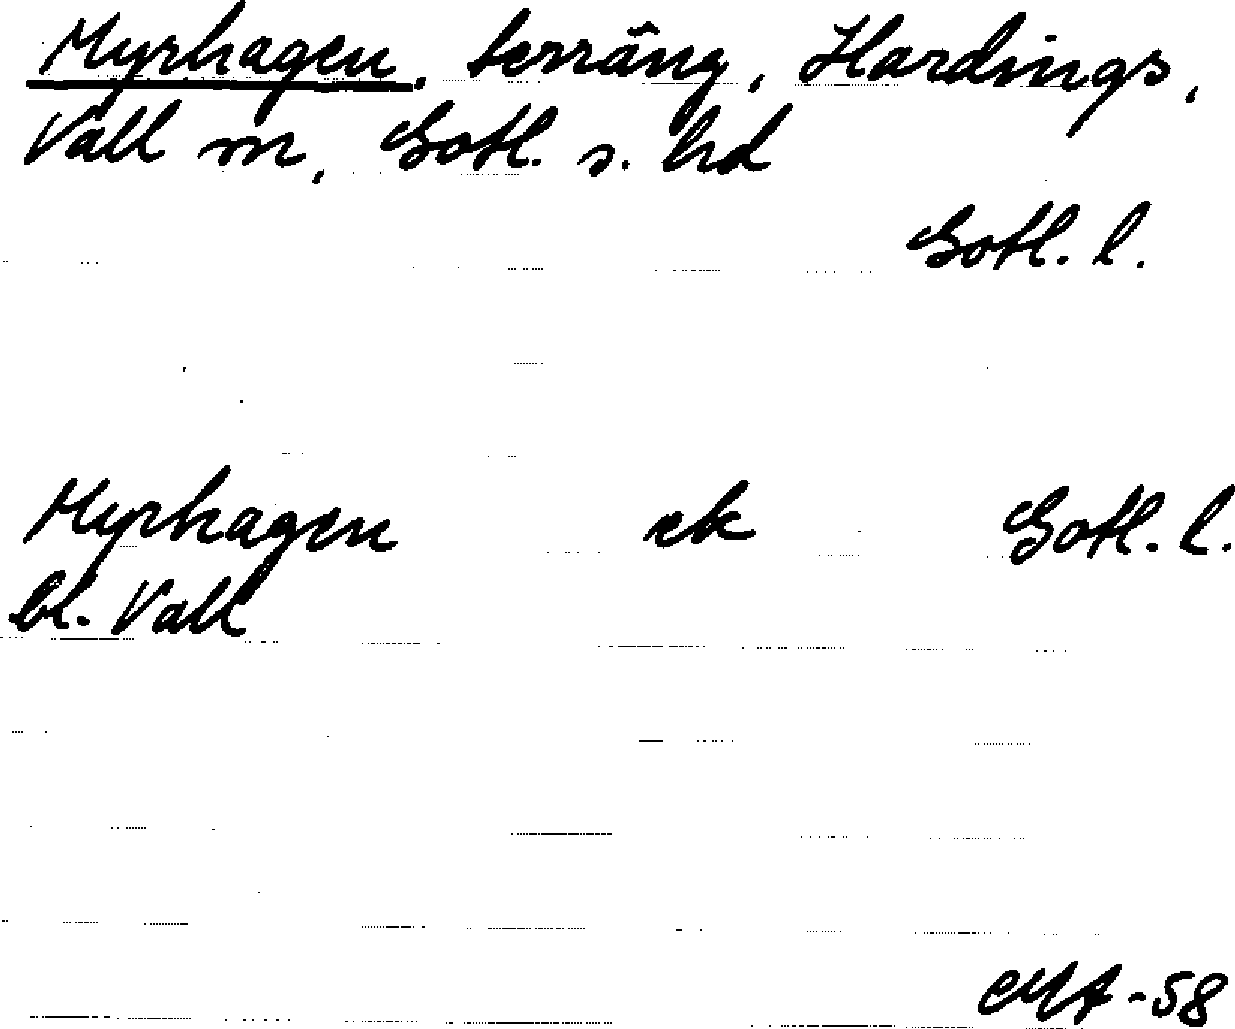 Myrhagen, terräng, Hardings,
Vall sn, Gotl. s. hd
Gotl. l.
Myrhagen ek Gotl. l.
bl. Vall
MA-58